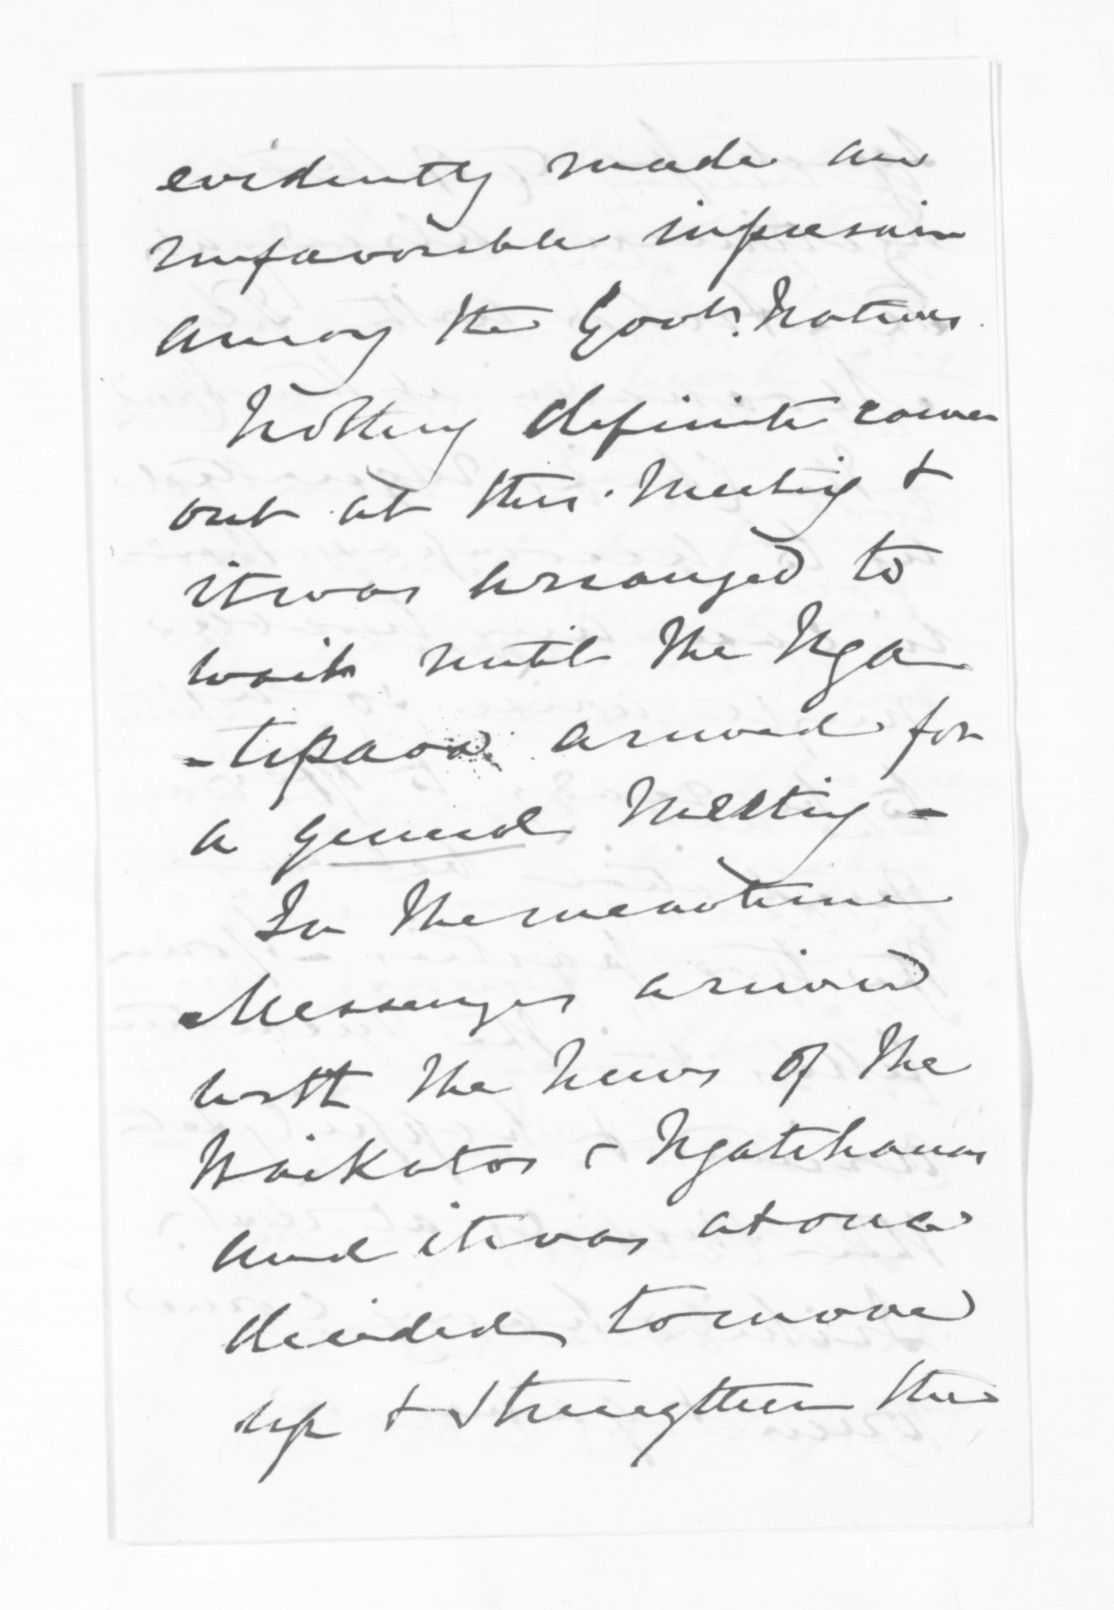 evidently made an
unfavorible impression
among the Govt. Natives.
Nothing definite came
out at this Meeting &
it was arranged to
wait until the Nga
-tipaoa arrived for
a general Meeting -
In the meantime
Messengers arrived
with the news of the
Waikatos & Ngatihauas
and it was at once
decided to move
up & strengthen the